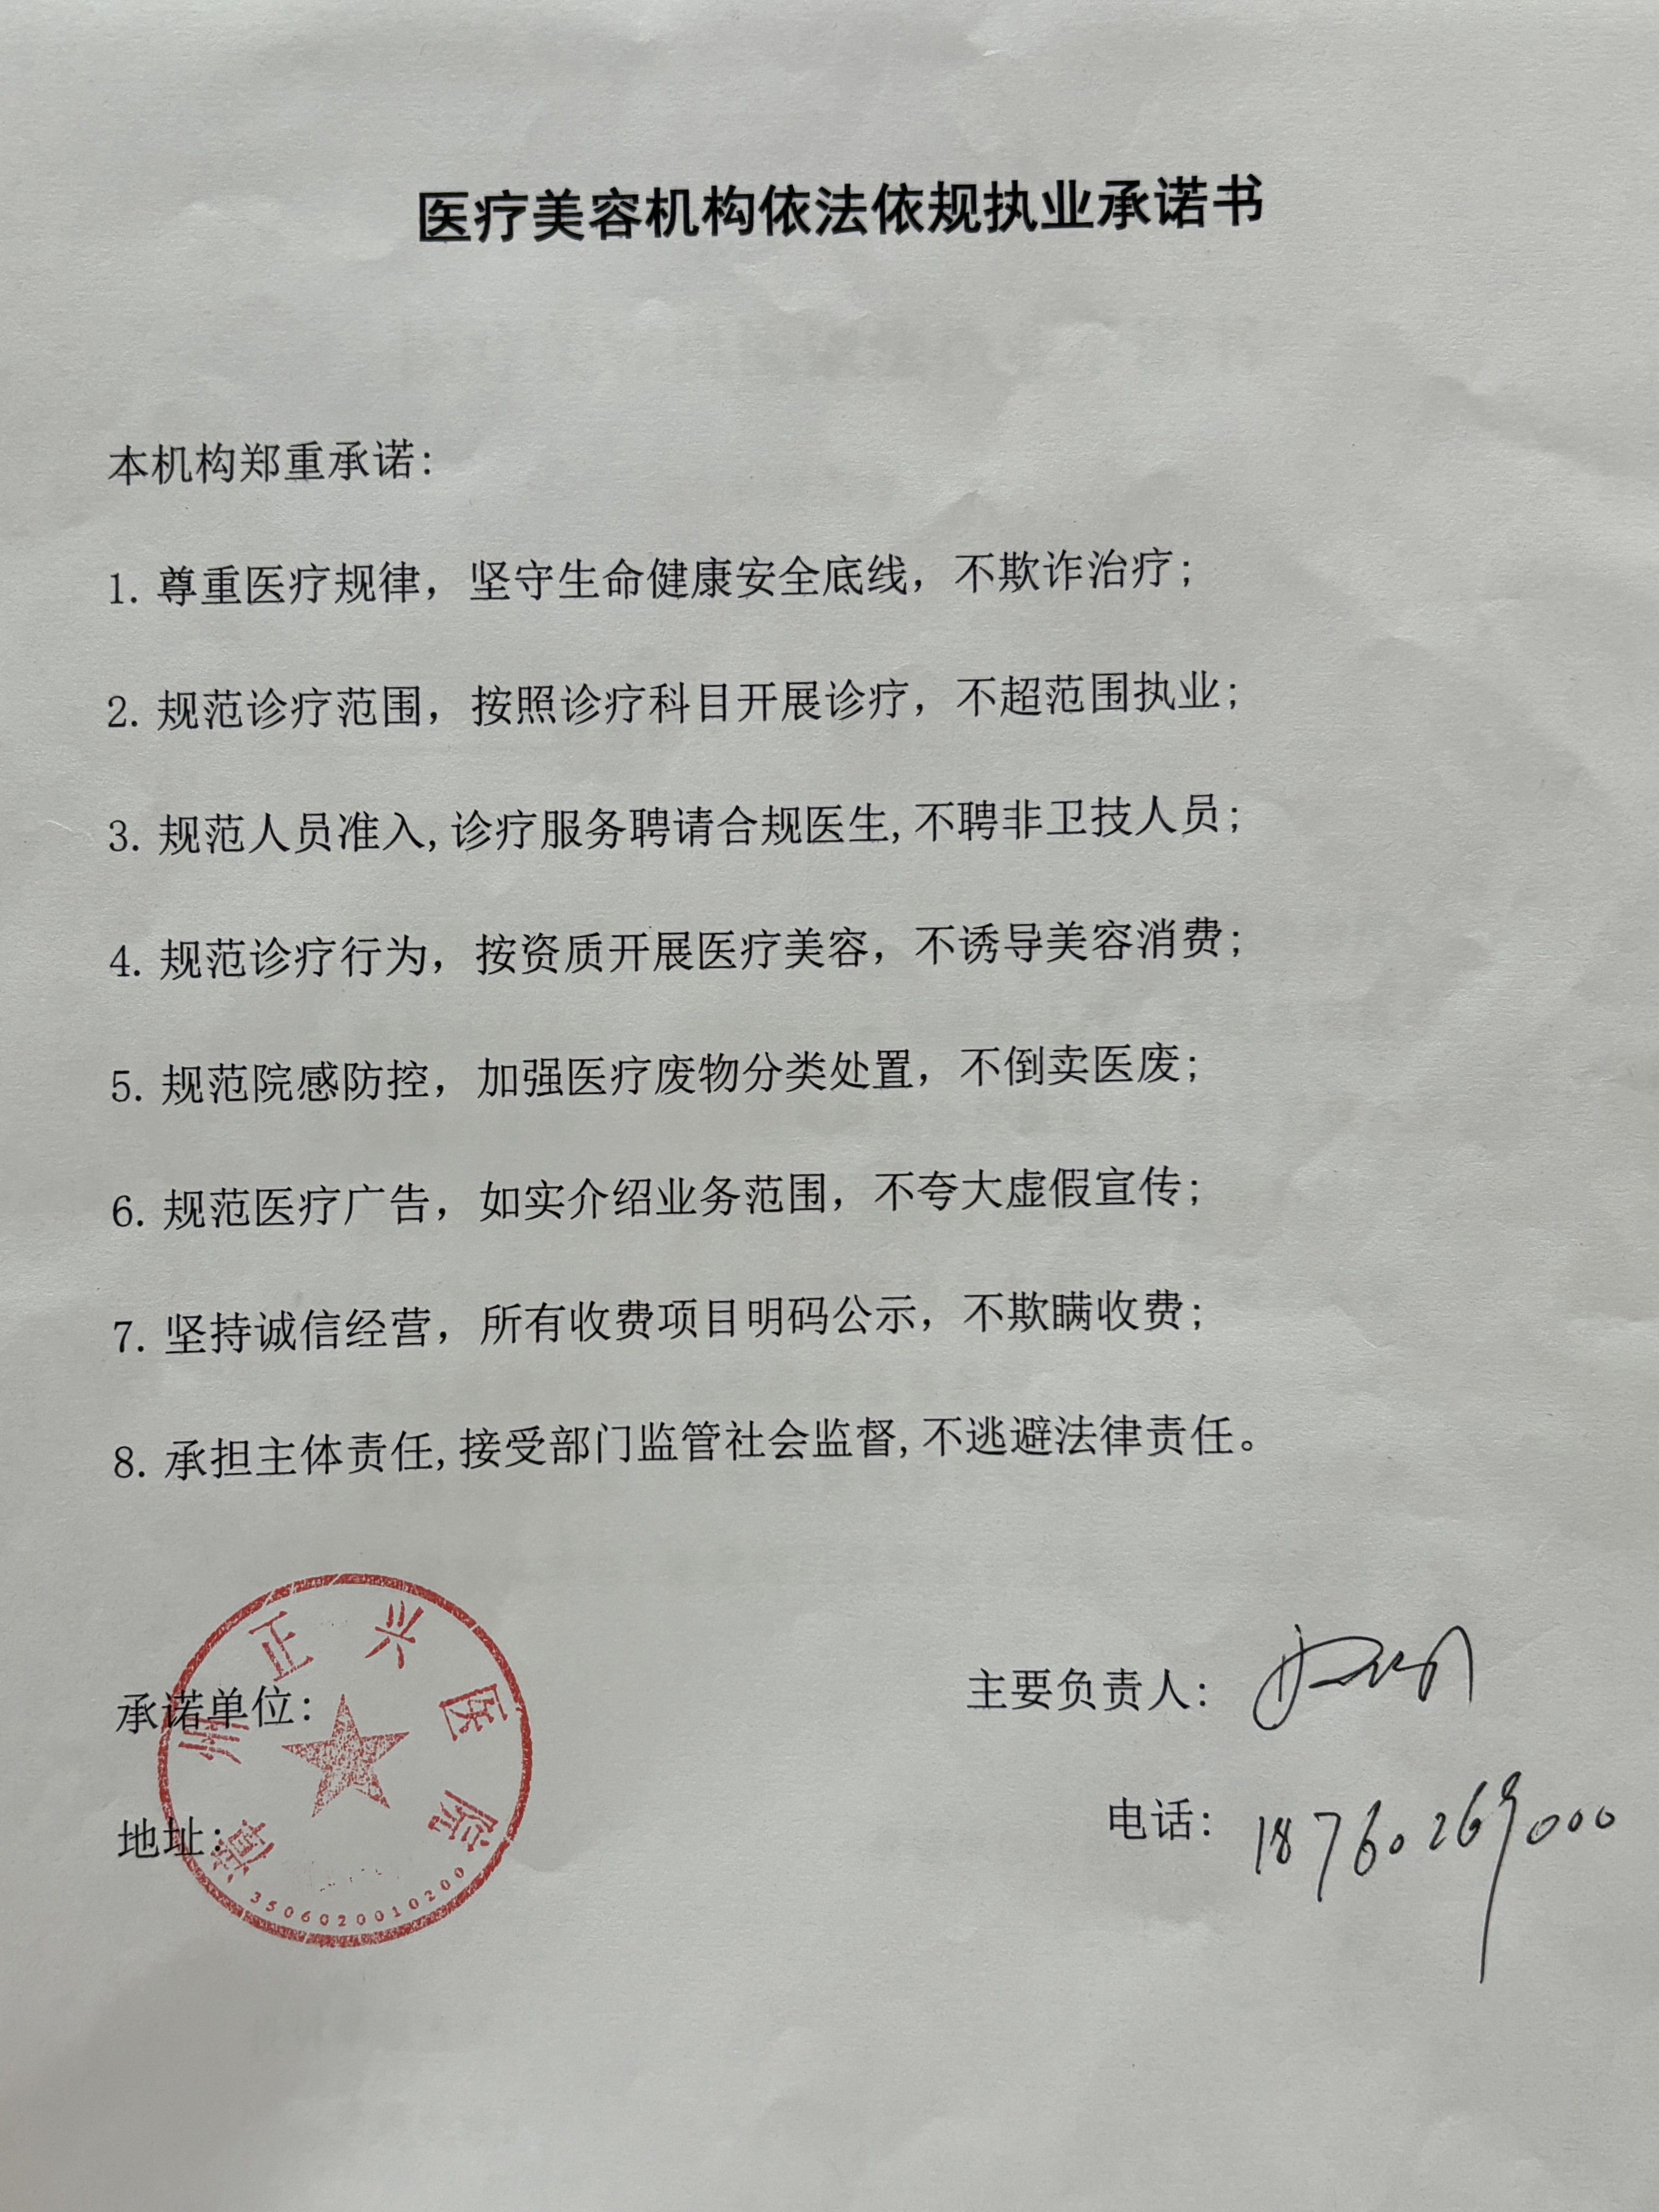 医疗美容机构依法依规执业承诺书
本机构郑重承诺:
1. 尊重医疗规律，坚守生命健康安全底线，不欺诈治疗;
2. 规范诊疗范围，按照诊疗科目开展诊疗，不超范围执业;
3. 规范人员准入,诊疗服务聘请合规医生,不聘非卫技人员;
4. 规范诊疗行为，按资质开展医疗美容，不诱导美容消费;
5. 规范院感防控，加强医疗废物分类处置，不倒卖医废;
6. 规范医疗广告，如实介绍业务范围，不夸大虚假宣传;
7. 坚持诚信经营，所有收费项目明码公示，不欺瞒收费;
8. 承担主体责任,接受部门监管社会监督,不逃避法律责任。
承诺单位:
主要负责人:
地址:
电话: 18760269000
漳州正兴医院
3506020010200